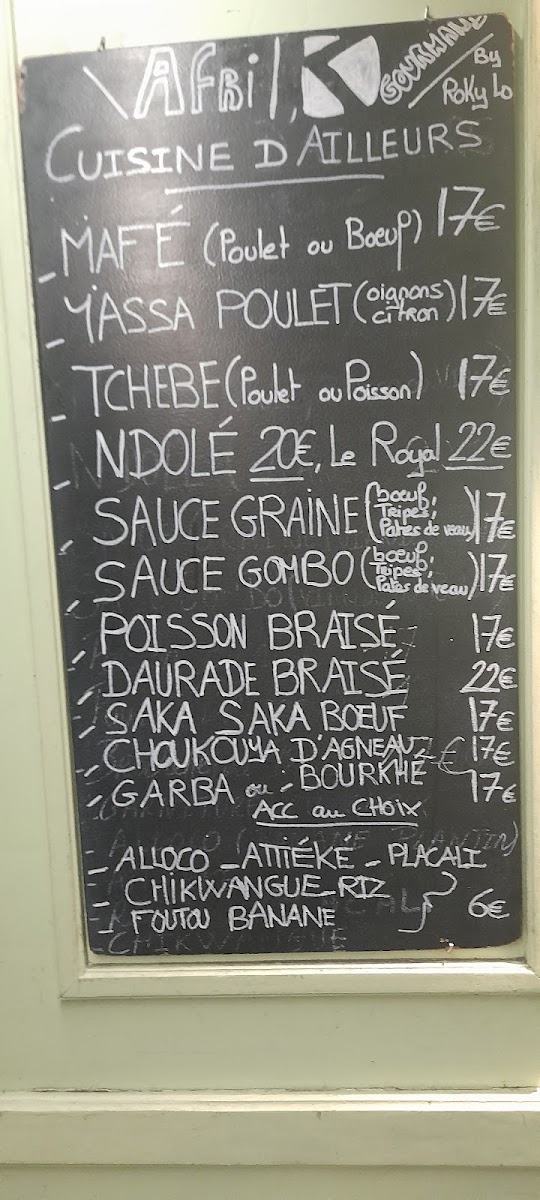 Afri'K GOURMAND
By
Roky Lo
CUISINE D AILLEURS
- MAFÉ (Poulet ou Boeuf) 17€
- YASSA POULET (oignons citron) 17€
- TCHEBE (Poulet ou Poisson) 17€
- NDOLÉ 20€, Le Royal 22€
- SAUCE GRAINE (boeuf, Tripes, Pates de veau) 17€
- SAUCE GOMBO (boeuf, Tripes, Pates de veau) 17€
- POISSON BRAISÉ 17€
- DAURADE BRAISÉ 22€
- SAKA SAKA BOEUF 17€
- CHOUKOUYA D'AGNEAU 17€
- GARBA ou BOURKHÉ 17€
ACC au CHOIX
- ALLOCO - ATTIÉKÉ - PLACALI
- CHIKWANGUE - RIZ
- FOUTOU BANANE } 6€